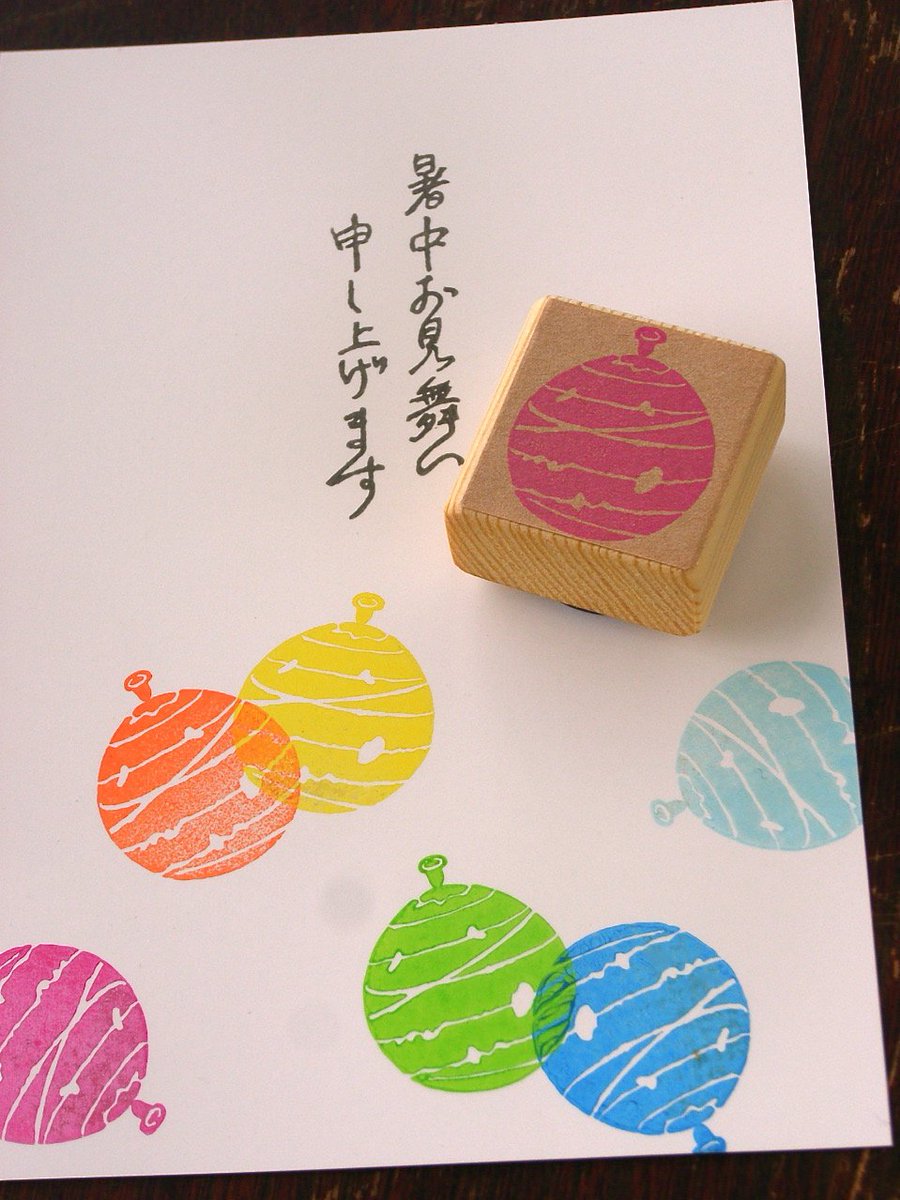 暑中お見舞い
申し上げます